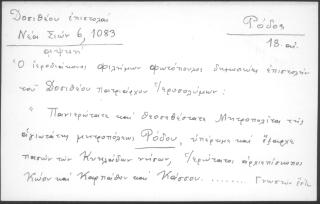 Δοσιθέου ἐπιστολαί
Ῥόδος
Νέα Σιών 6, 1083
18. αἰ.
Ὁ ἱεροδιάκονος φιλήμων φωτόπουλος δημοσιεύει ἐπιστολὴν
τοῦ Δοσιθέου πατριάρχου Ἱεροσολύμων:
" Πανιερώτατε καὶ θεοσεβέστατε Μητροπολῖτα τῆς
ἁγιωτάτης μητροπόλεως Ῥόδου, ὑπέρτιμε καὶ ἔξαρχε
πασῶν τῶν Κυκλάδων νήσων, Ἱερώτατοι ἀρχιεπίσκοποι
Κώου καὶ Καρπάθου καὶ Κάσσου. ....... Γνωστὸν